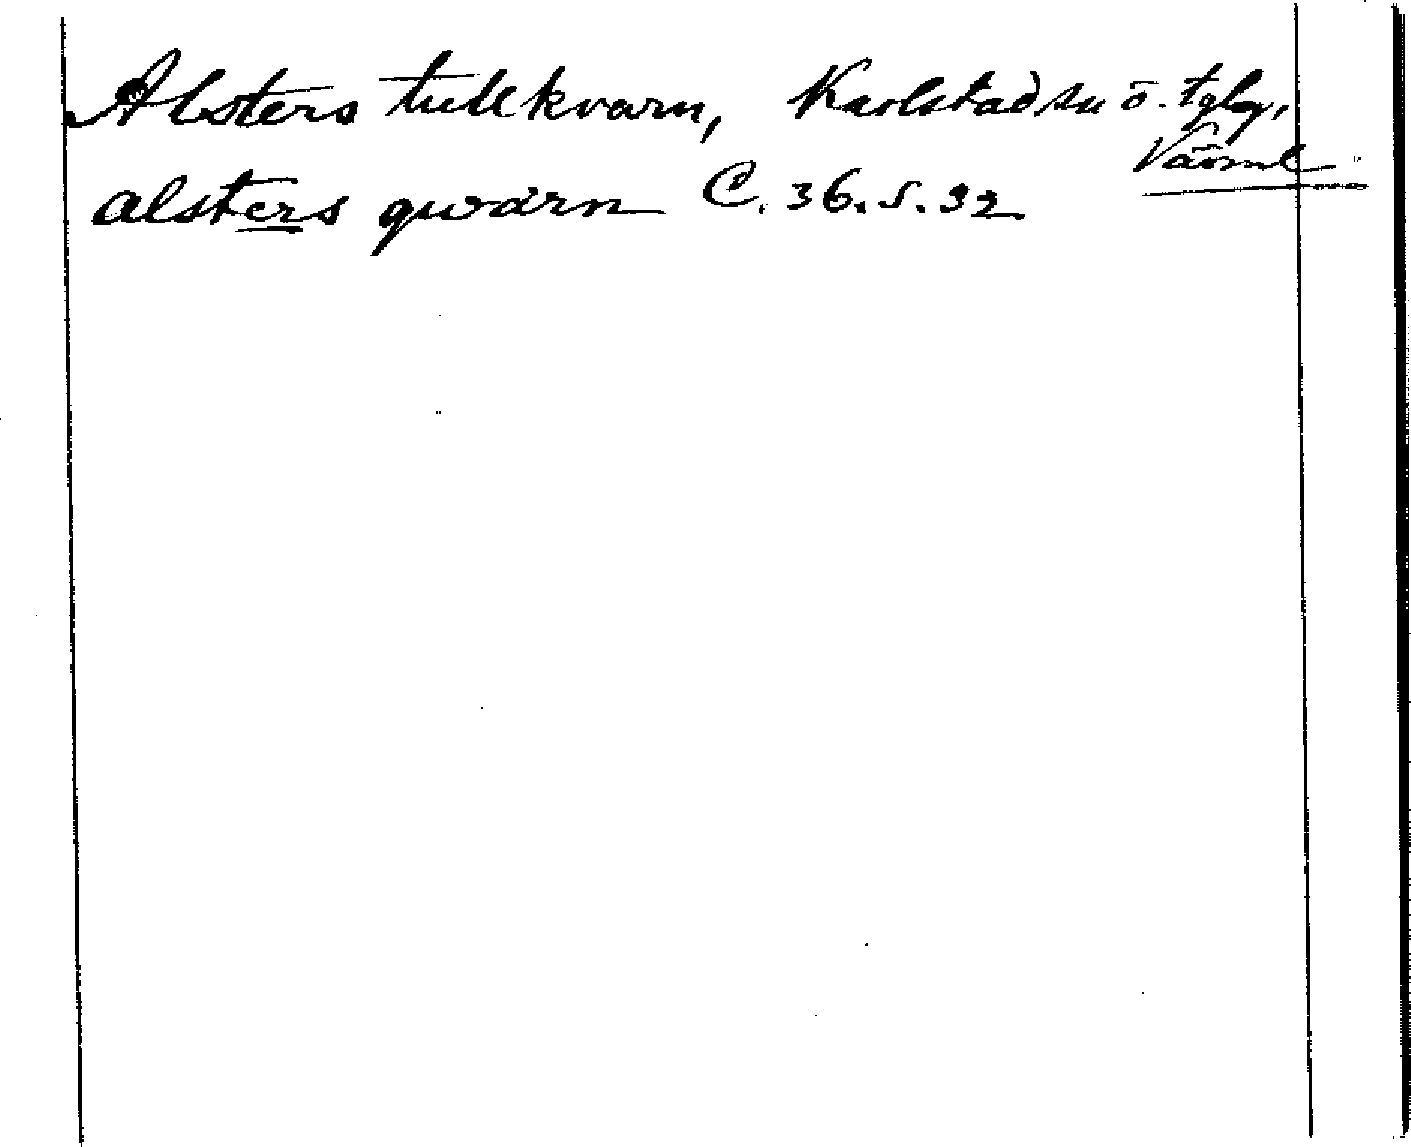 Alsters tullkvarn, Karlstads su ö. tglg,
Värml
alsters qwarn C. 36.5.92